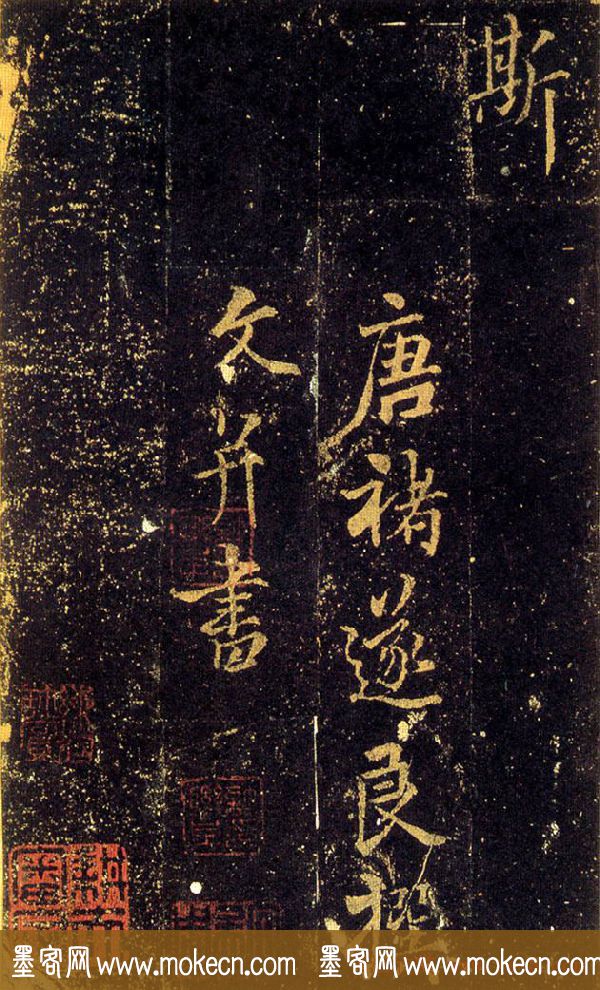 斯
唐褚遂良
文并書
墨客网 www.mokecn.com 墨客网 www.mokecn.com